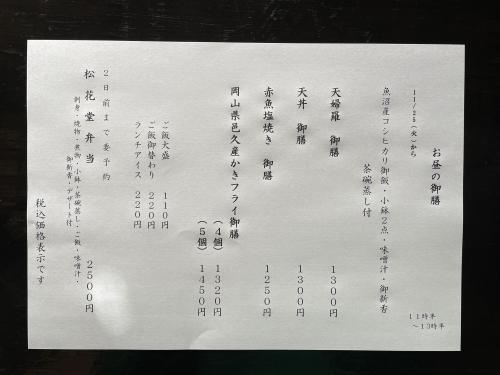 お昼の御膳
11/25(火)から
11時半
～13時半
魚沼産コシヒカリ御飯・小鉢2点・味噌汁・御新香
茶碗蒸し付
天婦羅 御膳 1300円
天丼 御膳 1300円
赤魚塩焼き 御膳 1250円
岡山県邑久産かきフライ御膳
(4個) 1320円
(5個) 1450円
ご飯大盛 110円
ご飯御替わり 220円
ランチアイス 220円
2日前まで要予約
松花堂弁当 2500円
刺身・焼物・煮物・小鉢・茶碗蒸し・ご飯・味噌汁・
御新香・デザート付
税込価格表示です